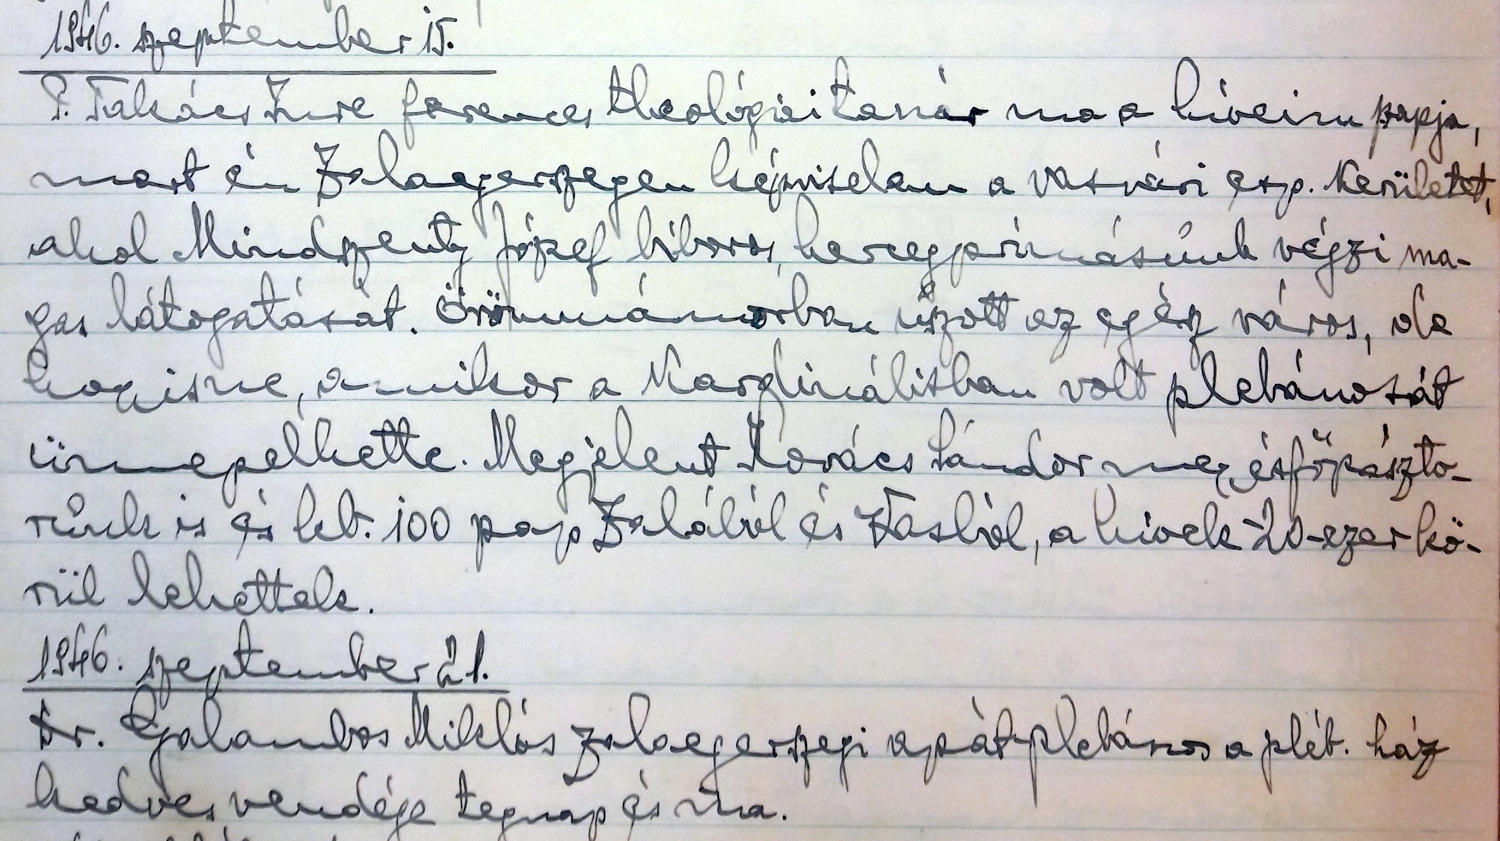 1946. szeptember 15.
P. Takács Imre ferences theológiai tanár ma a híveim papja,
mert én Zalaegerszegen képviselem a vasvári esp. kerületet,
ahol Mindszenty József bíboros, hercegprímásunk végzi ma-
gas látogatását. Örömmámorban úszott az egész város, de
hogyisne, amikor a Kardinálisban volt plebánosát
ünnepelhette. Megjelent Kovács Sándor megyésfőpászto-
runk is és kb. 100 pap Zalából és Vasból, a hívek 20-ezer kö-
rül lehettek.
1946. szeptember 21.
Dr. Galambos Miklós zalaegerszegi apátplebános a pléb. ház
kedves vendége tegnap és ma.